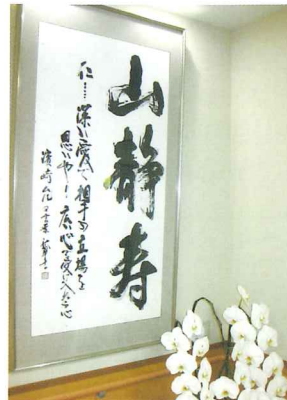 山静寿
仁…深い愛で相手の立場を
思いやり広い心で受入れる心
濱崎